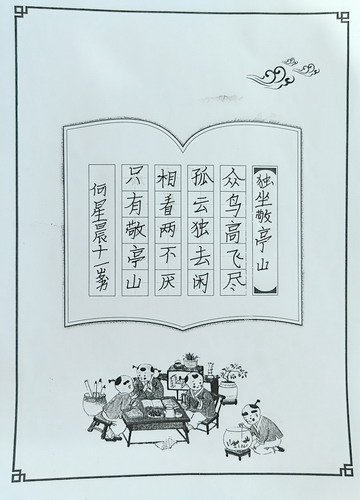 独坐敬亭山
众鸟高飞尽
孤云独去闲
相看两不厌
只有敬亭山
何星晨十一岁